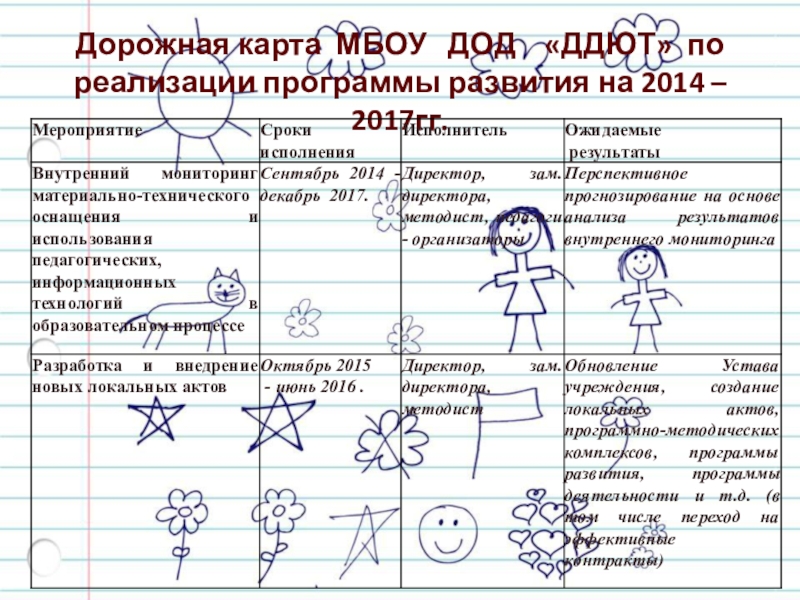 Дорожная карта МБОУ ДОД «ДДЮТ» по
реализации программы развития на 2014 –
2017гг.
Мероприятие
Сроки
исполнения
Исполнитель
Ожидаемые
результаты
Внутренний мониторинг
материально-технического
оснащения и
использования
педагогических,
информационных
технологий в
образовательном процессе
Сентябрь 2014 -
декабрь 2017.
Директор, зам.
директора,
методист, педагоги
- организаторы
Перспективное
прогнозирование на основе
анализа результатов
внутреннего мониторинга
Разработка и внедрение
новых локальных актов
Октябрь 2015
- июнь 2016 .
Директор, зам.
директора,
методист
Обновление Устава
учреждения, создание
локальных актов,
программно-методических
комплексов, программы
развития, программы
деятельности и т.д. (в
том числе переход на
эффективные
контракты)